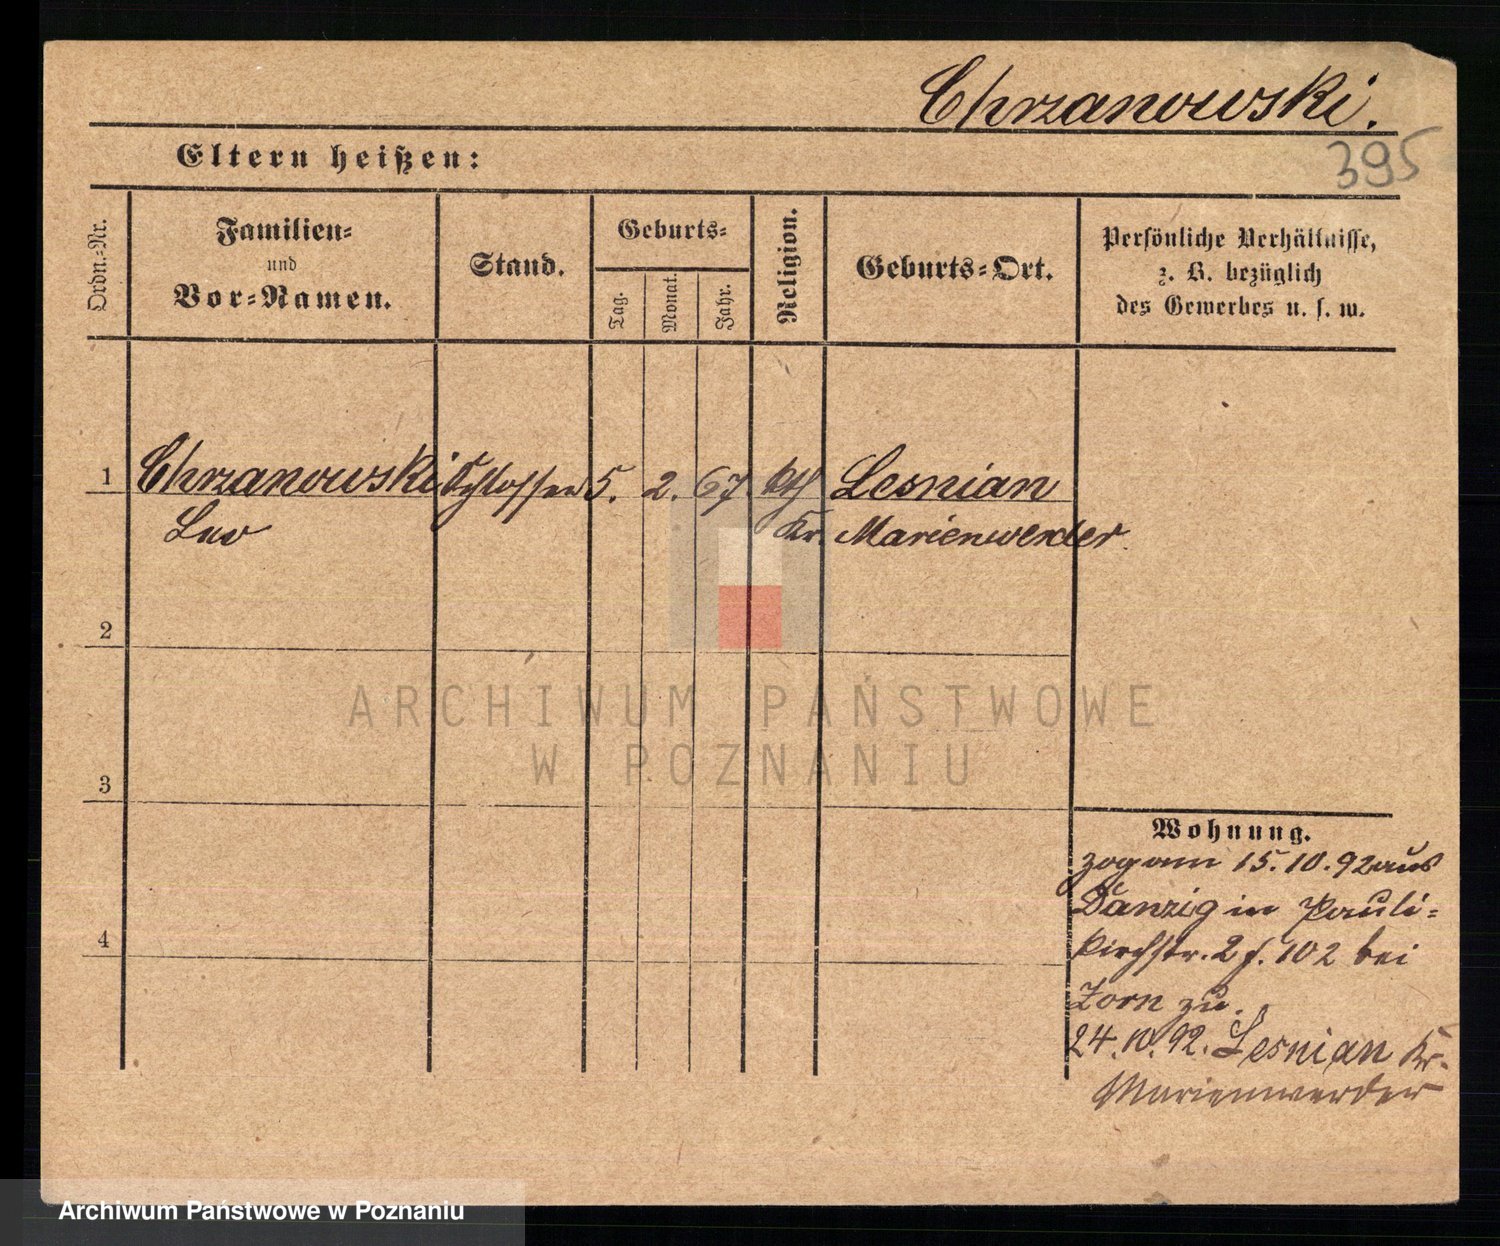 Chrzanowski.
395
Eltern heißen:
Ordn.-Nr.
Familien-
und
Vor-Namen.
Stand.
Geburts-
Tag.
Monat.
Jahr.
Religion.
Geburts-Ort.
Persönliche Verhältnisse,
z. B. bezüglich
des Gewerbes u. s. w.
1 Chrzanowski Schlosser 5. 2. 67 kth Lesnian
Leo Kr. Marienwerder
2
3
4
Wohnung.
zog am 15.10.92 aus
Danzig in Pauli-
kirchstr. 2 f. 102 bei
Zorn zu.
24.10.92. Lesnian Kr.
Marienwerder
ARCHIWUM PAŃSTWOWE
W POZNANIU
Archiwum Państwowe w Poznaniu